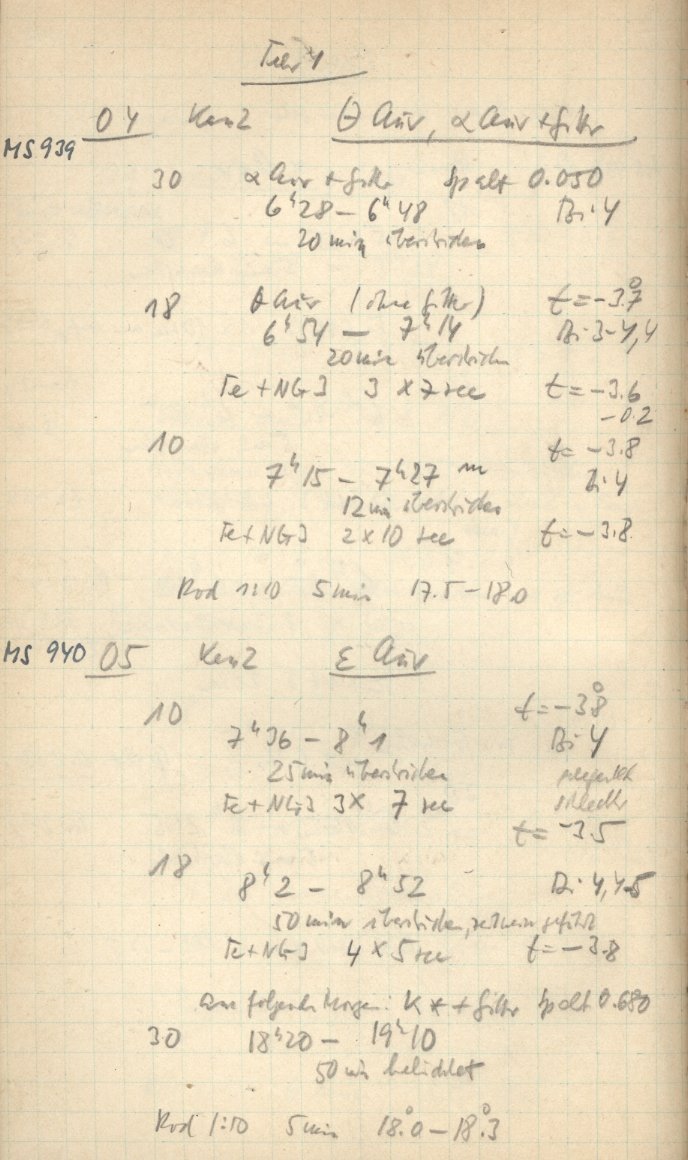 Febr 4
04 Kam2 θ Aur, α Aur + Filter
MS 939
30 α Aur + Filter Spalt 0.050
6ʰ28 – 6ʰ48 Bi. 4
20 min überstrichen
18 θ Aur (ohne Filter) t = –3.°7
6ʰ54 – 7ʰ14 Bi 3-4,4
20 min überstrichen
Fe + NG3 3 × 7 sec t = –3.6
–0.2
10 t = –3.8
7ʰ15 – 7ʰ27 m Bi 4
12 min überstrichen
Fe + NG3 2 × 10 sec t = –3.8
Rod 1:10 5 min 17.5 – 18.0
MS 940 05 Kam2 ε Aur
10 t = –3.°8
7ʰ36 – 8ʰ1 Bi 4
25 min überstrichen
Fe + NG3 3 × 7 sec schlecht
t = –3.5
18 8ʰ2 – 8ʰ52 Bi 4, 4.5
50 min überstrichen, geführt
Fe + NG3 4 × 5 sec t = –3.8
am folgenden Morgen: K * + Filter Spalt 0.680
30 18ʰ20 – 19ʰ10
50 min belichtet
Rod 1:10 5 min 18.°0 – 18.°3